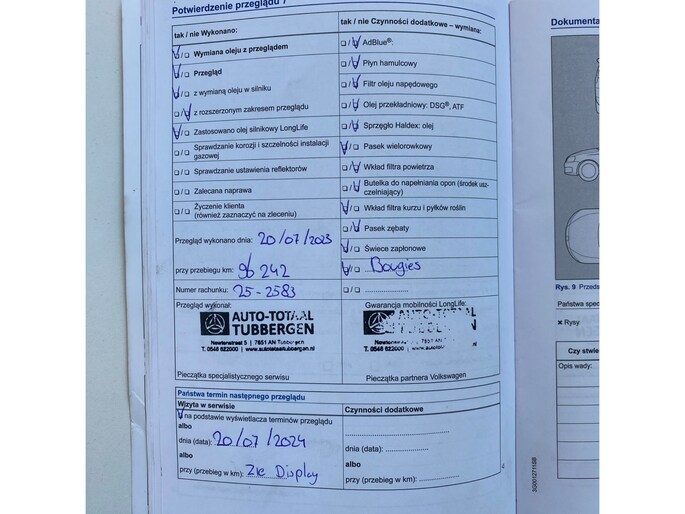 Potwierdzenie przeglądu 7
tak / nie Wykonano:
Wymiana oleju z przeglądem
Przegląd
z wymianą oleju w silniku
z rozszerzonym zakresem przeglądu
Zastosowano olej silnikowy LongLife
Sprawdzanie korozji i szczelności instalacji
gazowej
Sprawdzanie ustawienia reflektorów
Zalecana naprawa
Życzenie klienta
(również zaznaczyć na zleceniu)
Przegląd wykonano dnia: 20/07/2023
przy przebiegu km: 96 242
Numer rachunku: 25-2583
Przegląd wykonał:
AUTO-TOTAAL
TUBBERGEN
Newtonstraat 5 | 7651 AN Tubbergen
T. 0546 622000 | www.autototaaltubbergen.nl
Pieczątka specjalistycznego serwisu
tak / nie Czynności dodatkowe – wymiana:
AdBlue®:
Płyn hamulcowy
Filtr oleju napędowego
Olej przekładniowy: DSG®, ATF
Sprzęgło Haldex: olej
Pasek wielorowkowy
Wkład filtra powietrza
Butelka do napełniania opon (środek usz-
czelniający)
Wkład filtra kurzu i pyłków roślin
Pasek zębaty
Świece zapłonowe
Bougies
Gwarancja mobilności LongLife:
AUTO-TOTAAL
Pieczątka partnera Volkswagen
Państwa termin następnego przeglądu
Wizyta w serwisie
na podstawie wyświetlacza terminów przeglądu
albo
dnia (data): 20/07/2024
albo
przy (przebieg w km): Zie Display
Czynności dodatkowe
dnia (data):
albo
przy (przebieg w km):
Dokumenta
Rys. 9 Przeds
Państwa spec
Rysy
Czy stwie
Opis wady: